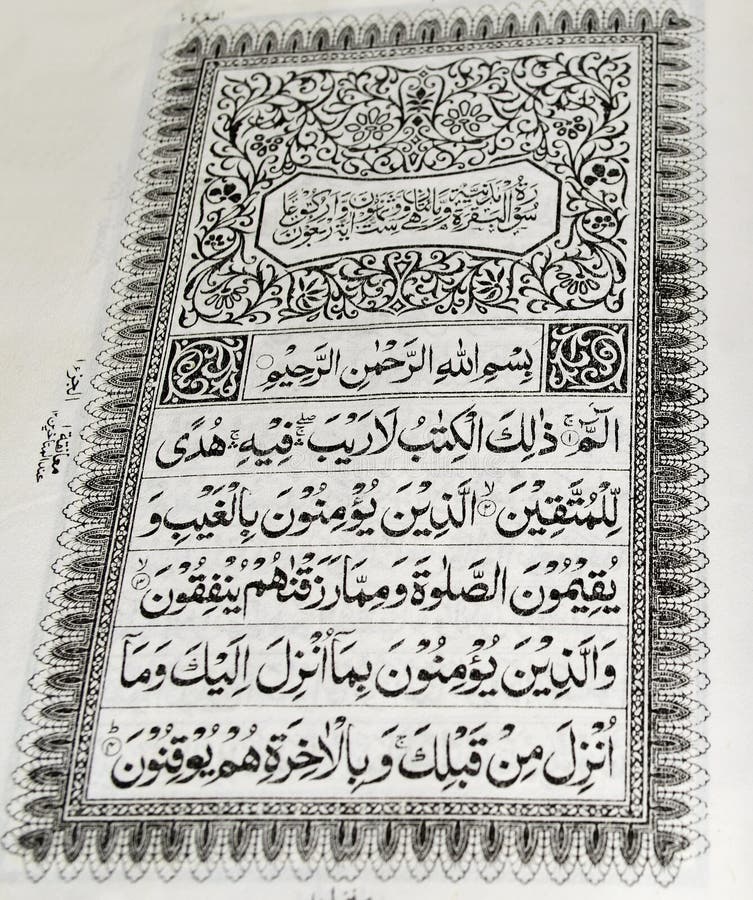 البقرة ٢
سورة البقرة مدنية وهي مائتان وست وثمانون آية وأربعون ركوعا
بِسْمِ اللهِ الرَّحْمٰنِ الرَّحِيْمِ
الٓمّٓ ۚ ١ ذٰلِكَ الْكِتٰبُ لَا رَيْبَ ۖۛ فِيْهِ ۚۛ هُدًى
لِّلْمُتَّقِيْنَ ۙ ٢ الَّذِيْنَ يُؤْمِنُوْنَ بِالْغَيْبِ وَ
يُقِيْمُوْنَ الصَّلٰوةَ وَمِمَّا رَزَقْنٰهُمْ يُنْفِقُوْنَ ۙ ٣
وَالَّذِيْنَ يُؤْمِنُوْنَ بِمَآ اُنْزِلَ اِلَيْكَ وَمَآ
اُنْزِلَ مِنْ قَبْلِكَ ۚ وَبِالْاٰخِرَةِ هُمْ يُوْقِنُوْنَ ؕ ٤
معانقة ١